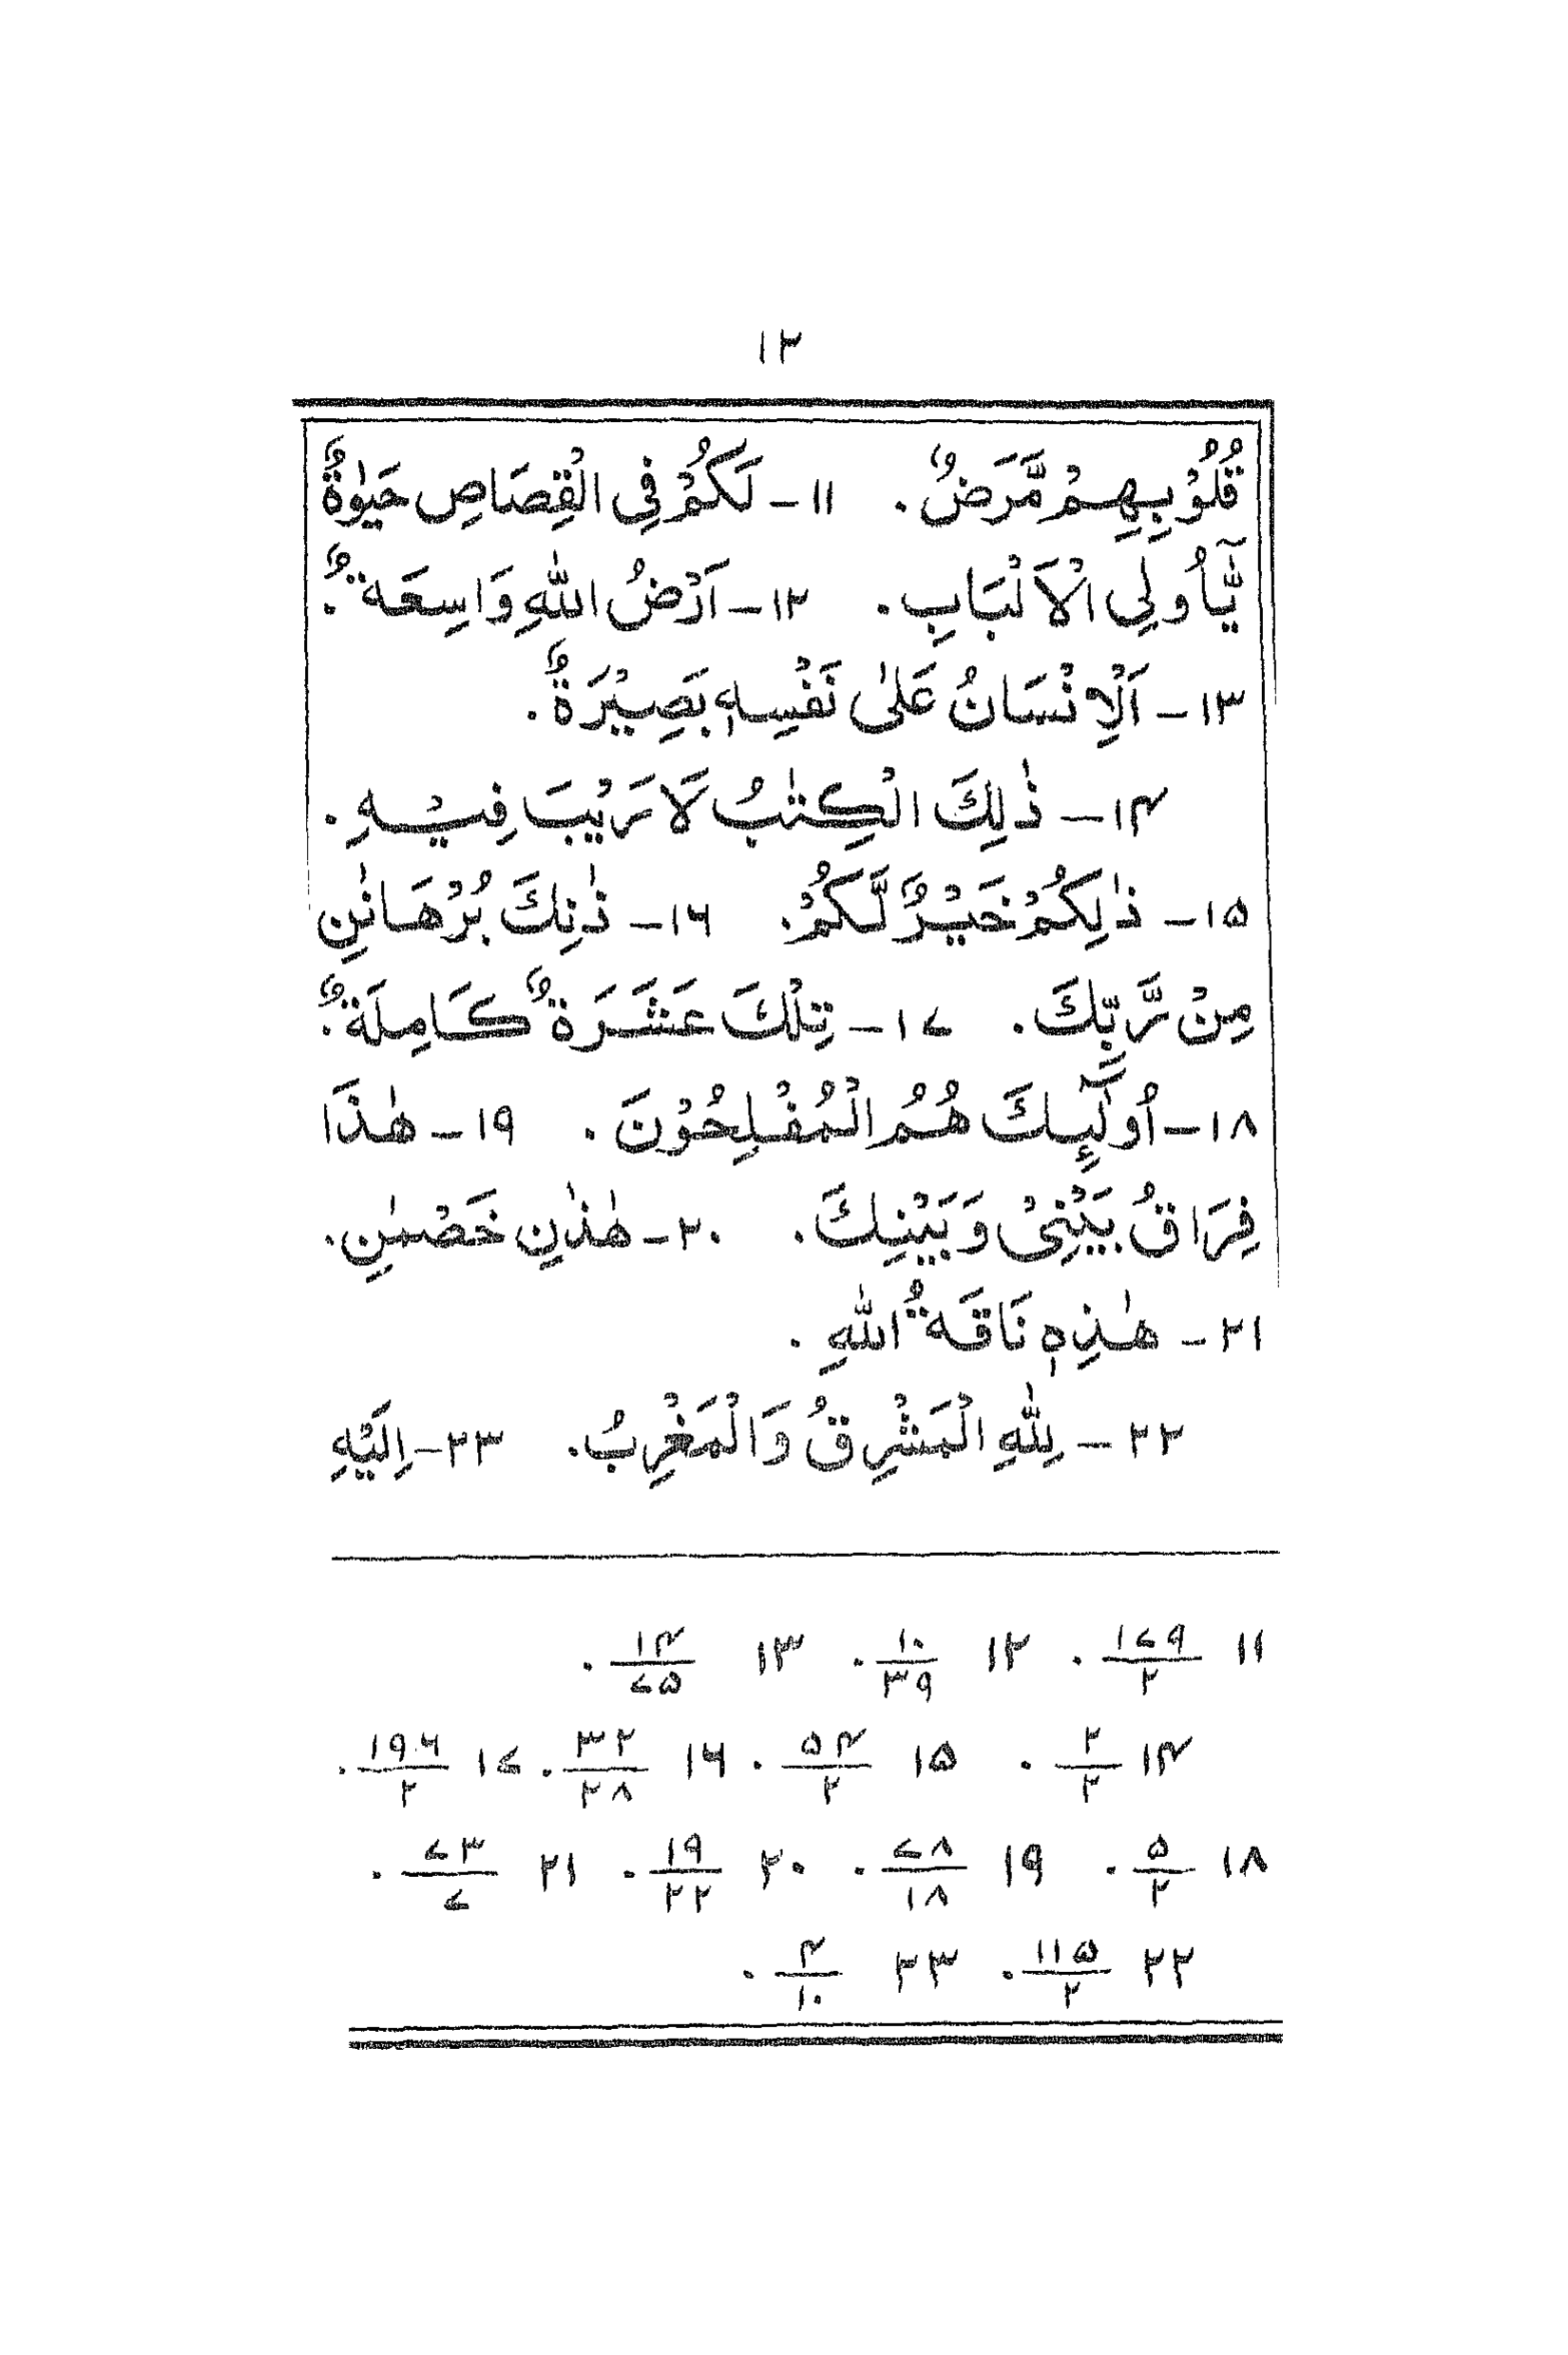 ۱۲
قُلُوْبِهِمْ مَّرَضٌ. ۱۱- لَكُمْ فِى الْقِصَاصِ حَيٰوةٌ
يّٰۤاُولِى الْاَلْبَابِ. ۱۲- اَرْضُ اللّٰهِ وَاسِعَةٌ.
۱۳- اَلْاِنْسَانُ عَلٰى نَفْسِهٖ بَصِيْرَةٌ.
۱۴- ذٰلِكَ الْكِتٰبُ لَا رَيْبَ فِيْهِ.
۱۵- ذٰلِكُمْ خَيْرٌ لَّكُمْ. ۱۶- ذٰنِكَ بُرْهَانٰنِ
مِنْ رَّبِّكَ. ۱۷- تِلْكَ عَشَرَةٌ كَامِلَةٌ.
۱۸- اُولٰٓئِكَ هُمُ الْمُفْلِحُوْنَ. ۱۹- هٰذَا
فِرَاقُ بَيْنِىْ وَبَيْنِكَ. ۲۰- هٰذٰنِ خَصْمٰنِ.
۲۱- هٰذِهٖ نَاقَةُ اللّٰهِ.
۲۲- لِلّٰهِ الْمَشْرِقُ وَالْمَغْرِبُ. ۲۳- اِلَيْهِ
۱۱ ۱۷۹/۲. ۱۲ ۱۰/۳۹. ۱۳ ۱۴/۷۵.
۱۴ ۲/۲. ۱۵ ۵۴/۲. ۱۶ ۳۲/۲۸. ۱۷ ۱۹۶/۲.
۱۸ ۵/۲. ۱۹ ۷۸/۱۸. ۲۰ ۱۹/۲۲. ۲۱ ۷۳/۷.
۲۲ ۱۱۵/۲. ۲۳ ۴/۱۰.